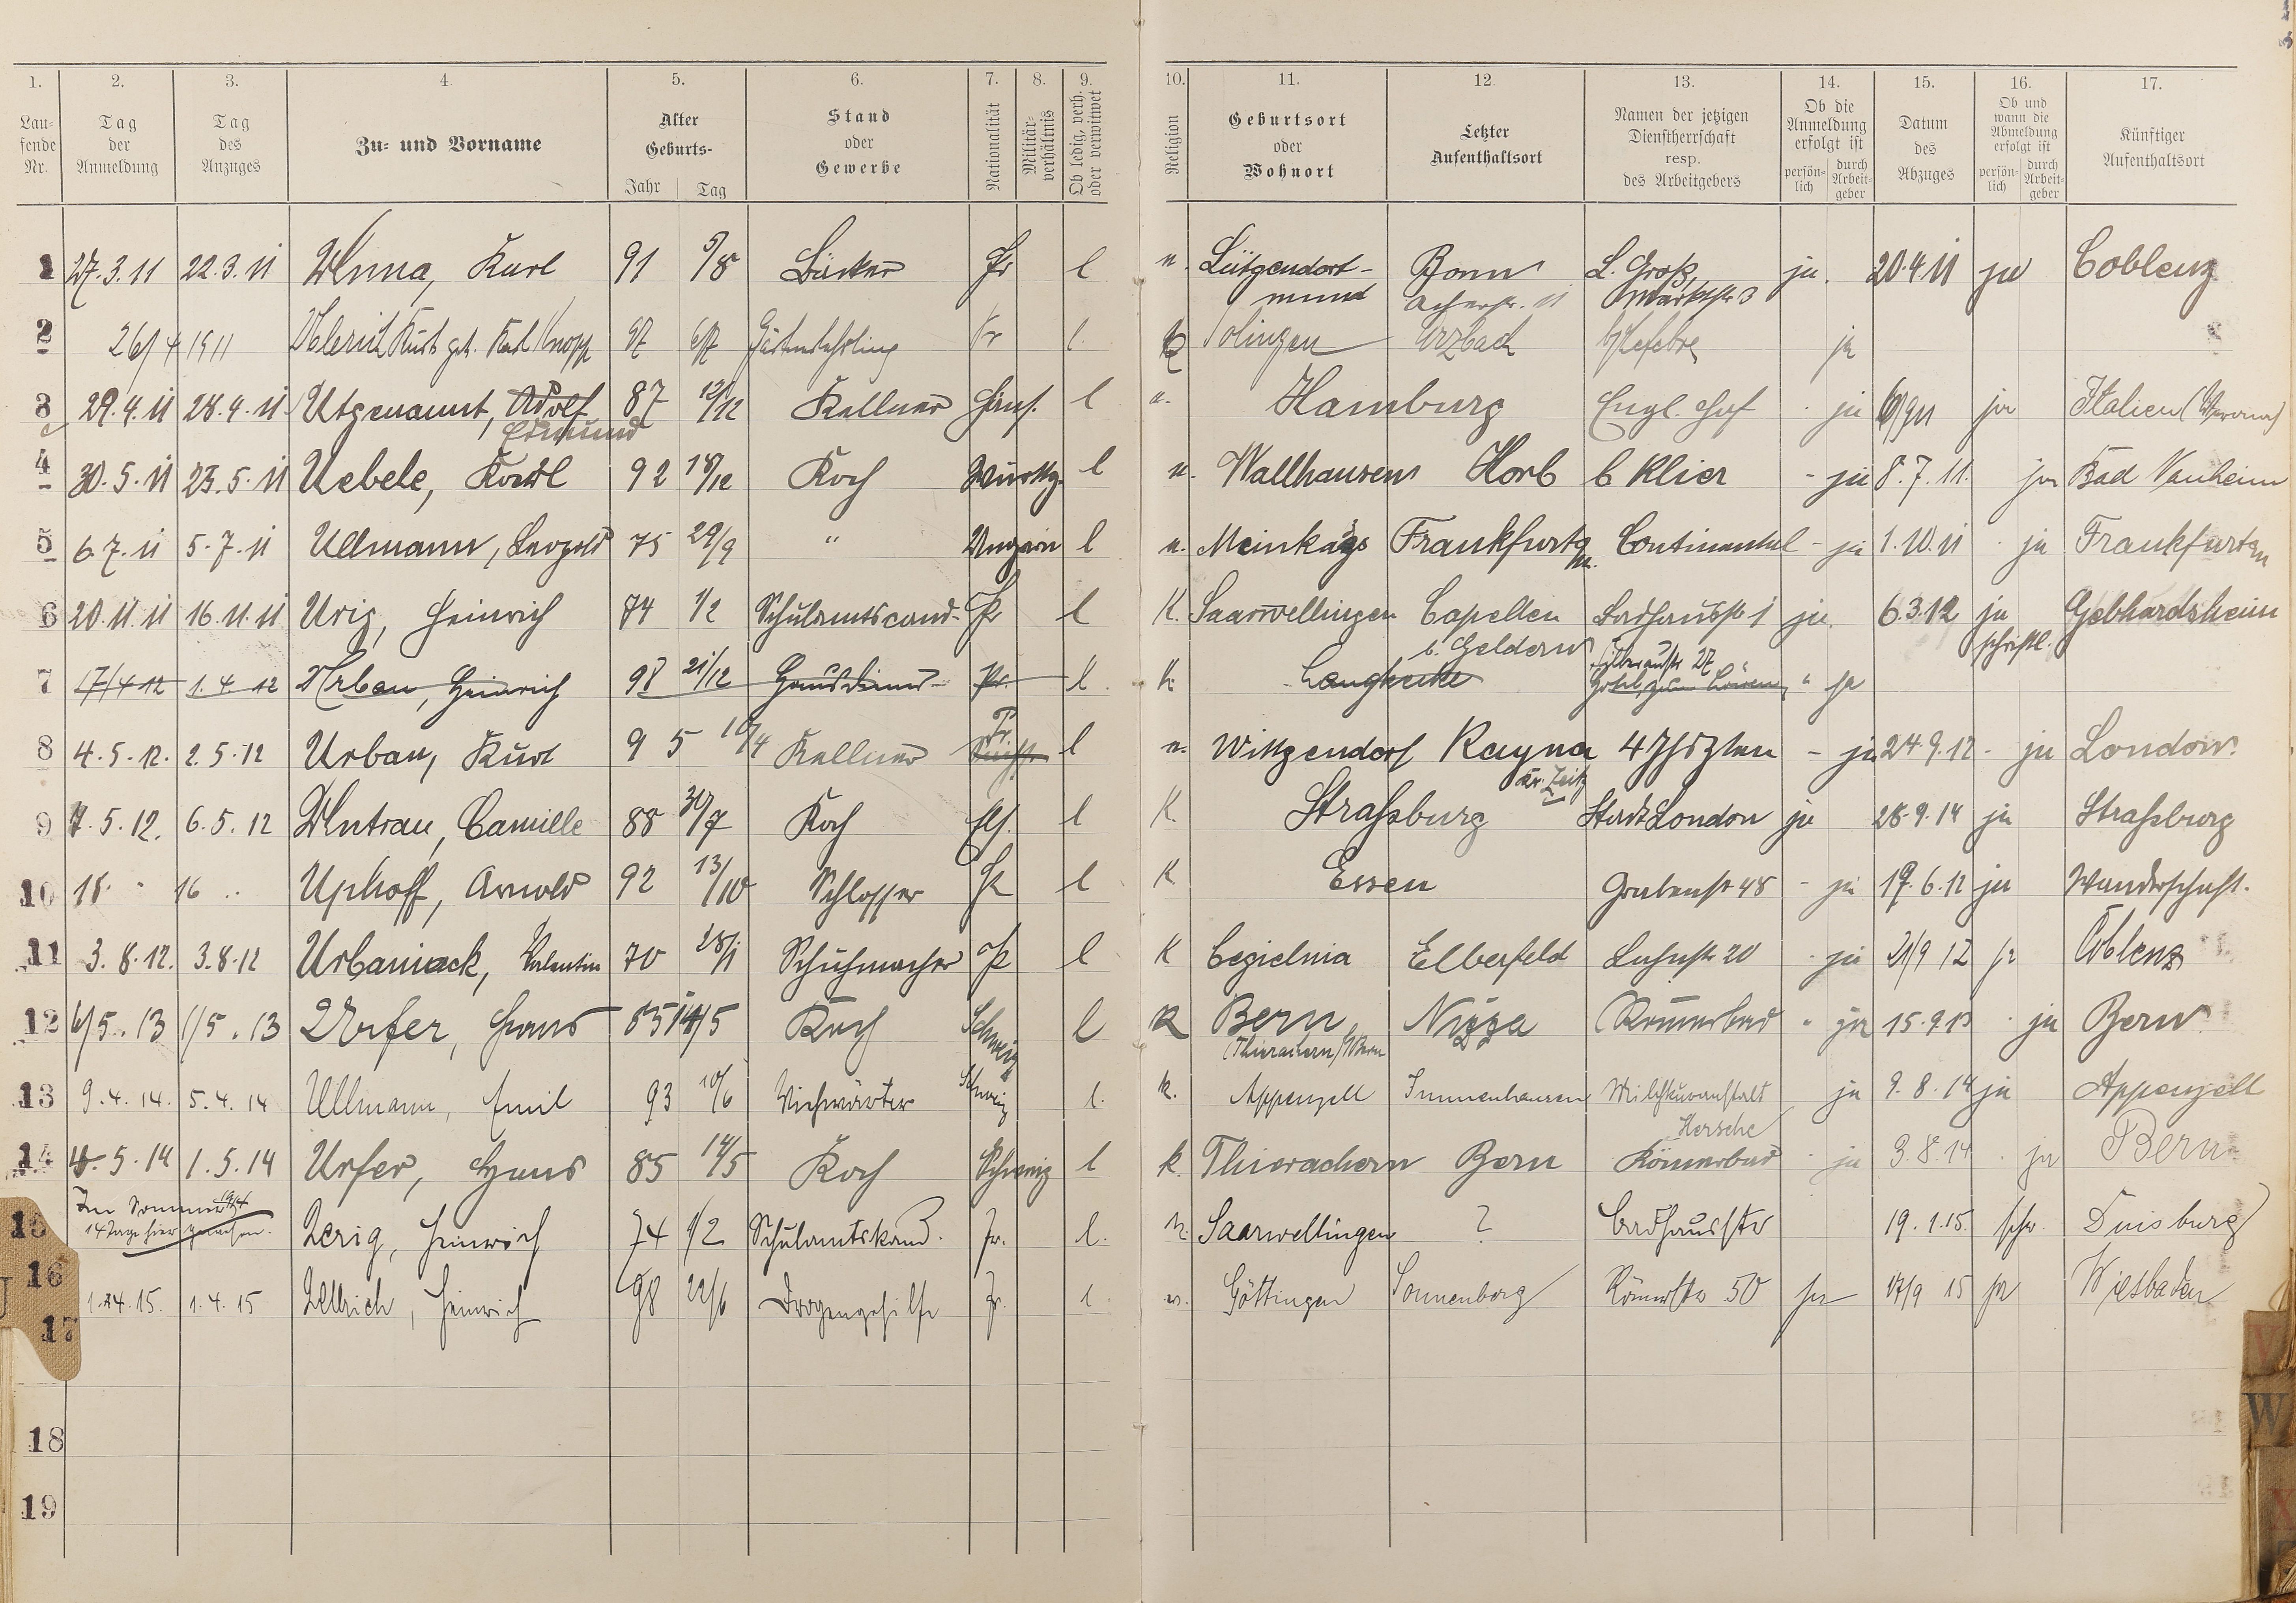 1. 2. 3. 4. 5. 6. 7. 8. 9. 10. 11. 12. 13. 14. 15. 16. 17.
Laufende Nr. Tag der Anmeldung Tag des Anzuges Zu- und Vorname Alter Geburts- Jahr Tag Stand oder Gewerbe Nationalität Militärverhältnis Ob ledig, verh. oder verwitwet Religion Geburtsort oder Wohnort Letzter Aufenthaltsort Namen der jetzigen Dienstherrschaft resp. des Arbeitgebers Ob die Anmeldung erfolgt ist persönlich durch Arbeitgeber Datum des Abzuges Ob und wann die Abmeldung erfolgt ist persönlich durch Arbeitgeber Künftiger Aufenthaltsort
1 27.3.11 22.3.11 Karl 91 5/8 Bäcker Pr l Lütgendort- Bonn L. Groß, ja. 20.4.11 ja Coblenz
mund Marktstr 3
2 26/4 1911 Kurt Knopp Gärtnerlehrling Pr l. Solingen Lefebre ja
3 29.4.11 28.4.11 Utgenannt, Adolf 87 12/12 Kellner Hans. l Hamburg Engl. Hof ja ja Italien
Edmund
4 30.5.11 23.5.11 Uebele, Karl 92 18/12 Koch Württg. l Wallhausen Horb b Klier - ja 8.7.11. ja Bad Nauheim
5 6.7.11 5.7.11 Ullmann, Leopold 75 29/9 " Ungarn l Frankfurt a M. Continental - ja 1.10.11 ja Frankfurt a M
6 20.11.11 16.11.11 Urig, Heinrich 74 1/2 Schulamtscand. Pr l K. Saarwellingen Capellen Badhausstr 1 ja. 6.3.12 ja Gebhardsheim
b. Geldern schriftl.
7 17/4 12 1.4.12 Urban, Heinrich 98 21/12 Hausdiener Pr. l. k Langhecke Hotel zum Löwen " ja
8 4.5.12. 2.5.12 Urban, Kurt 95 10/4 Kellner Pr. l Wittgendorf Rayna 4 Jhrszten - ja 24.9.12 - ja London.
Kr. Zeitz
9 7.5.12. 6.5.12 Camille 88 30/7 Koch Els. l K Straßburg Stadt London ja 28.9.14 ja Straßburg
10 18. " 16 " Uphoff, Arnold 92 13/10 Schlosser Pr l K Essen Grabenstr 48 - ja 19.6.12 ja Wanderschaft.
11 3.8.12. 3.8.12 Urbaniack, Valentin 70 28/1 Schuhmacher Pr l K Cegielnia Elberfeld 20 ja 21/9 12 ja Coblenz
12 6/5.13 1/5.13 Urfer, Hans 85 14/5 Koch Schweiz l K Bern Nizza Römerbad " ja 15.9.13 ja Bern
(Thierachern/Bern
13 9.4.14. 5.4.14 Ullmann, Emil 93 10/6 Viehwärter Schweiz l. k. Appenzell Immenhausen Milchkuranstalt ja 9.8.14 ja Appenzell
Hersche
14 4.5.14 1.5.14 Urfer, Hans 85 14/5 Koch Schweiz l k. Thierachern Bern Römerbad ja 3.8.14 ja Bern
Im Sommer 1914
15 14 Tage hier gewesen. Uerig, Heinrich 74 1/2 Schulamtskand. Pr. l. k. Saarwellingen ? Badhausstr 19.1.15. schr. Duisburg
16 1.4.15. 1.4.15 Ullrich, Heinrich 98 22/6 Drogengehilfe Pr. l. Göttingen Sonnenberg Römerstr 50 ja 17/9 15 ja Wiesbaden
17
18
19
V
W
X